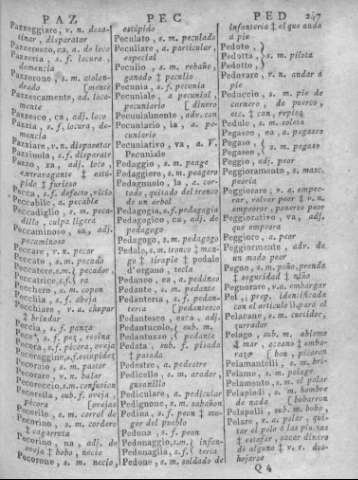 PAZ PEC PED 247
Pazzeggiare, v. n. desa-
tinar, disparatar
Pazzerenzo, ea, a. de loco
Pazzeria, s. f. locura,
demencia
Pazzerone } s. m. atolon-
drado [mente
Pazzescamente, ad. loca-
mente
Pazzesco, ca, adj. loco
Pazzia, s. f. locura, de-
mencia
Pazziare, v. n. disparatar
s. f. disparate
Pazzo, za, adj. loco,
extravagante ‡ estú-
pido ‡ furioso
Pecca, s. f. defecto, vicio
Peccabile, a. pecable
Peccadiglio, s. m. peca-
dillo, culpa ligera
Peccaminoso, sa, adj.
pecaminoso
Peccare, v. n. pecar
Peccato, s. m. pecado
Peccatore, s.m. { pecador,
Peccatrice, s.f. { ra
Pecchero, s. m. copon
Pecchia, s. f. abeja
Pecchiare, v. a. chupar
‡ brindar
Peccia, s. f. panza
Pece, s. f. pez, resina
Pecora, s. f. pécora, oveja
Pecoraggine, s.f. estupidez
Pecoraio, s. m. pastor
Pecorare, v. n. balar
Pecoreccio, s.m. confusion
Pecorella, sub. f. oveja,
pécora [ovejada
Pecorile, s. m. corral de
Pecorino, s. m. cordero
‡ cagarruta
Pecorino, na, adj. de
oveja ‡ bobo, necio
Pecorone, s. m. necio,
estúpido
Peculato, s. m. peculado
Peculiare, a. particular,
especial
Peculio, s. m. rebaño,
ganado ‡ peculio
Pecunia, s. f. pecunia
Pecuniale, a. pecunial,
pecuniario [dinero
Pecunialmente, adv. con
Pecuniario, ia, a. pe-
cuniario
Pecuniativo, va, a. V.
Pecuniale
Pedaggio, s. m. peage
Pedaggiero, s. m. peagero
Pedagnuolo, la, a. cor-
tado, quitado del tronco
de un arbol
Pedagogia, s. f. pedagogia
Pedagogico, ca, adj. de
pedagogo
Pedagogo, s. m. pedagogo
Pedale, s. m. tronco ‡ man-
go ‡ tirapie ‡ pedale
d'organo, tecla
Pedaneo, ea, a. pedáneo
Pedante, s. m. pedante
Pedanteria, s. f. pedan-
teria [pedantesco
Pedantesco, esca, adj.
Pedantucolo } sub. m.
Pedantuzzo } pedante
Pedata, sub. f. pisada
‡ patada
Pedestre, a. pedestre
Pedicello, s. m. arador,
gusanillo
Pediculare, a. pedicular
Pedignone, s. m. sabañon
Pedina, s. f. peon ‡ mu-
ger del pueblo
Pedona, s. f. peon
Pedonaggio, s.m. { infan-
Pedonaglia, s.f. { teria
Pedone, s. m. soldado de
infanteria ‡ el que anda
á pie
Pedoto }
Pedotta } s. m. piloto
Pedotto }
Pedovare, v. n. andar á
pie
Peduccio, s. m. pie de
carnero, de puerco,
etc. ‡ con, repisa
s. m. soleta
Pegaseo, ea, a. pegaseo
Pegaseo } s. m. Pegaso
Pegaso }
Peggio, adj. peor
Peggioramento, s. masc.
peoría
Peggiorare, v. a. empeo-
rar, volver peor ‡ v. n.
empeorar, ponerse peor
Peggiorativo, va, adj.
que empeora
Peggiore, a. peor
Peggiormente, adv. de
un modo peor
Pegno, s. m. peño, prenda
‡ seguridad ‡ niño
Pegnorare, v.a. embargar
Pel, prep. identificada
con el articulo il; para el
Pelacane, s. m. curtidor,
zurrador
Pelago, sub. m. abismo
‡ mar, oceano ‡ emba-
razo [bon, pícaron
Pelamantelli, s. m. bri-
Pelame, s. m. pelage
Pelamento, s. m. el pelar
Pelapiedi, s. m. hombre
de nada [bobarron
Pelapolli, sub. m. bobo,
Pelare, v. a. pelar, qui-
tar el pelo á las pieles
‡ estafar, sacar dinero
de alguno ‡ v. r. des-
hojarse
Q 4